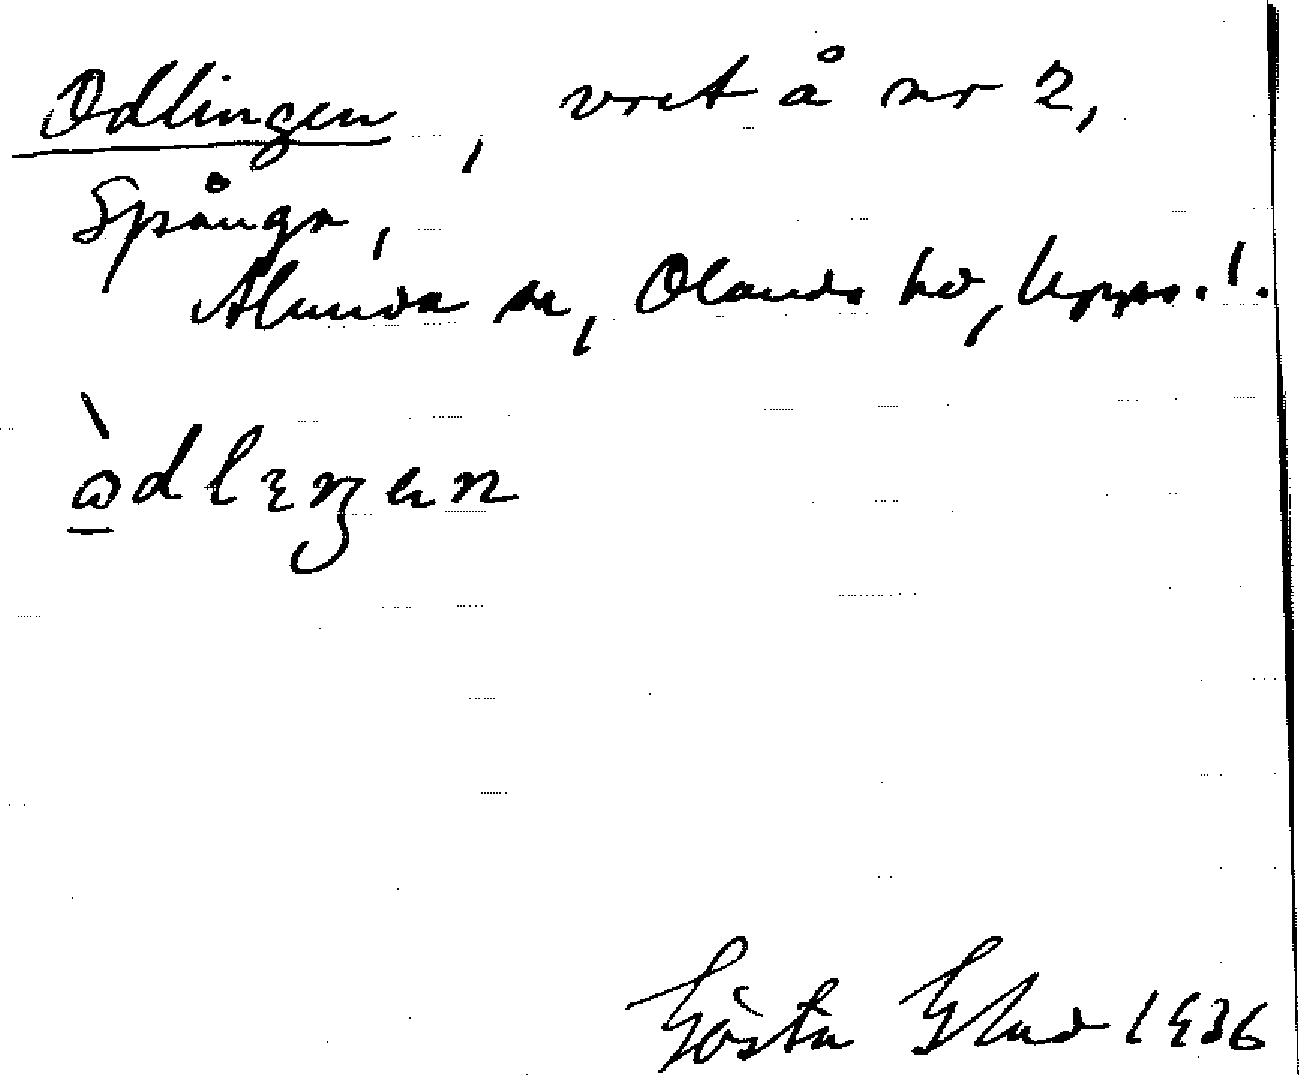 Odlingen, vret å nr 2,
Spånga,
Alunda sn, Olands hd, Upps. l.
òdlıŋɡen
Gösta Glad 1936